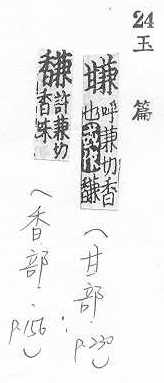 24
玉篇
㽐 呼兼切香
也或作馦
（甘部. p.230）
馦 許兼切
香味
（香部. p.156）